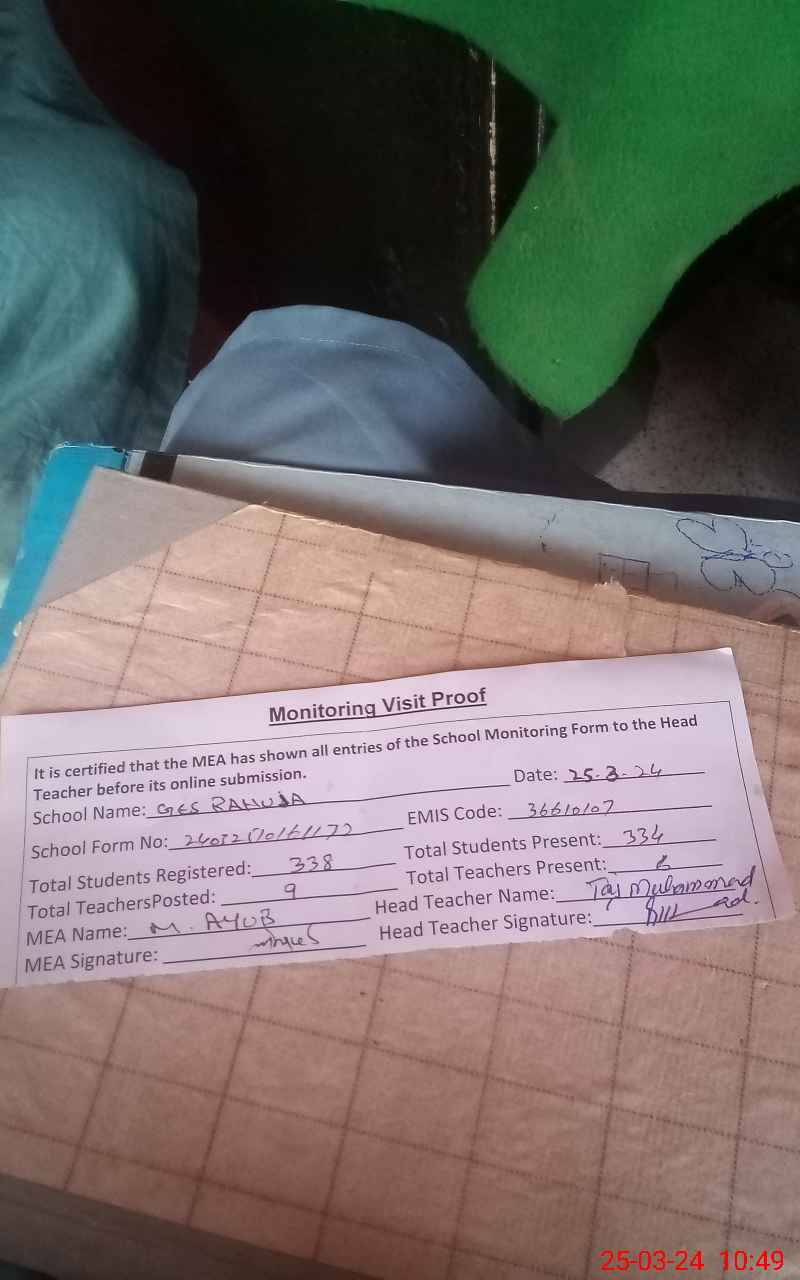 Monitoring Visit Proof
It is certified that the MEA has shown all entries of the School Monitoring Form to the Head
Teacher before its online submission.
Date: 25-3-24
School Name: GES
EMIS Code: 36610107
School Form No:
Total Students Registered: 338
Total Students Present: 334
Total TeachersPosted: 9
Total Teachers Present:
MEA Name: M. AYUB
Head Teacher Name: Taj Muhammad
MEA Signature:
Head Teacher Signature:
25-03-24 10:49